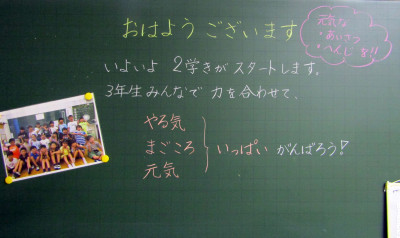 おはようございます
元気な
・あいさつ
・へんじ を!!
いよいよ 2学きが スタートします。
3年生 みんなで 力を合わせて、
やる気
まごころ
元気
いっぱい がんばろう!